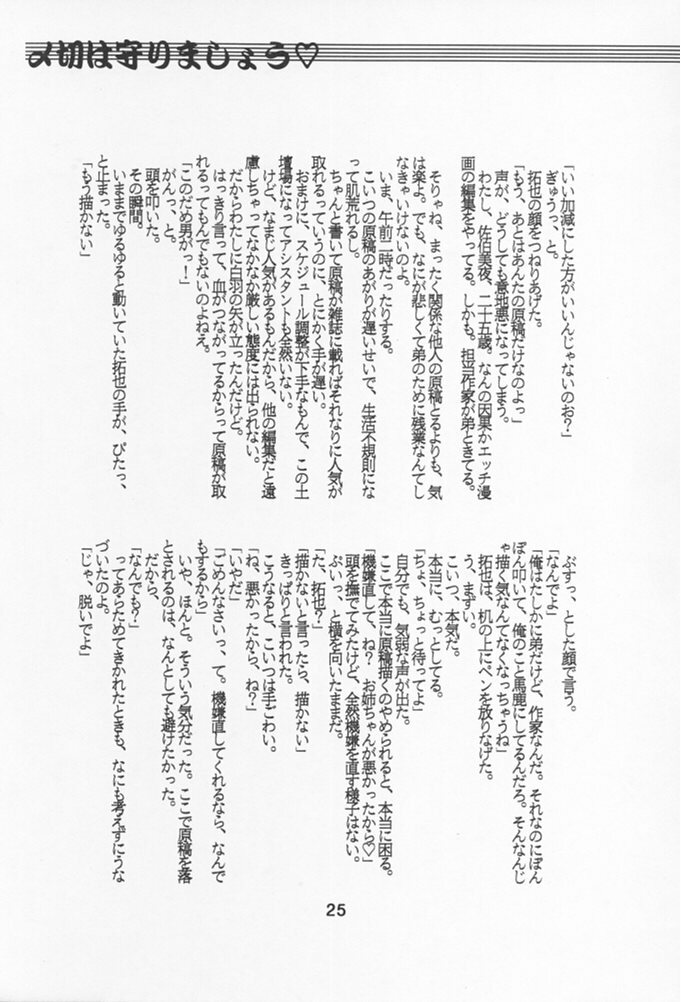 〆切は守りましょう♡
「いい加減にした方がいいんじゃないのお?」
ぎゅうっ、と。
拓也の顔をつねりあげた。
「もう、あとはあんたの原稿だけなのよっ」
声が、どうしても意地悪になってしまう。
わたし、佐伯美夜、二十五歳。なんの因果かエッチ漫
画の編集をやってる。しかも、担当作家が弟ときてる。
そりゃね、まったく関係な他人の原稿とるよりも、気
は楽よ。でも、なにが悲しくて弟のために残業なんてし
なきゃいけないのよ。
いま、午前二時だったりする。
こいつの原稿のあがりが遅いせいで、生活不規則にな
って肌荒れるし。
ちゃんと書いて原稿が雑誌に載ればそれなりに人気が
取れるっていうのに、とにかく手が遅い。
おまけに、スケジュール調整が下手なもんで、この土
壇場になってアシスタントも全然いない。
けど、なまじ人気があるもんだから、他の編集だと遠
慮しちゃってなかなか厳しい態度には出られない。
だからわたしに白羽の矢が立ったんだけど。
はっきり言って、血がつながってるからって原稿が取
れるってもんでもないのよねえ。
「このだめ男がっ!」
がんっ、と。
頭を叩いた。
その瞬間。
いままでゆるゆると動いていた拓也の手が、ぴたっ、
と止まった。
「もう描かない」
ぶすっ、とした顔で言う。
「なんでよ」
「俺はたしかに弟だけど、作家なんだ。それなのにぽん
ぽん叩いて、俺のこと馬鹿にしてるんだろ。そんなんじ
ゃ描く気なんてなくなっちゃうね」
拓也は、机の上にペンを放りなげた。
う、まずい。
こいつ、本気だ。
本当に、むっとしてる。
「ちょ、ちょっと待ってよ」
自分でも、気弱な声が出た。
ここで本当に原稿描くのやめられると、本当に困る。
「機嫌直して、ね? お姉ちゃんが悪かったから♡」
頭を撫でてみたけど、全然機嫌を直す様子はない。
ぷいっ、と横を向いたままだ。
「た、拓也?」
「描かないと言ったら、描かない」
きっぱりと言われた。
こうなると、こいつは手ごわい。
「ね、悪かったから、ね?」
「いやだ」
「ごめんなさいっ、って。機嫌直してくれるなら、なんで
もするから」
いや、ほんと。そういう気分だった。ここで原稿を落
とされるのは、なんとしても避けたかった。
だから、
「なんでも?」
ってあらためてきかれたときも、なにも考えずにうな
づいたのよ。
「じゃ、脱いでよ」
25